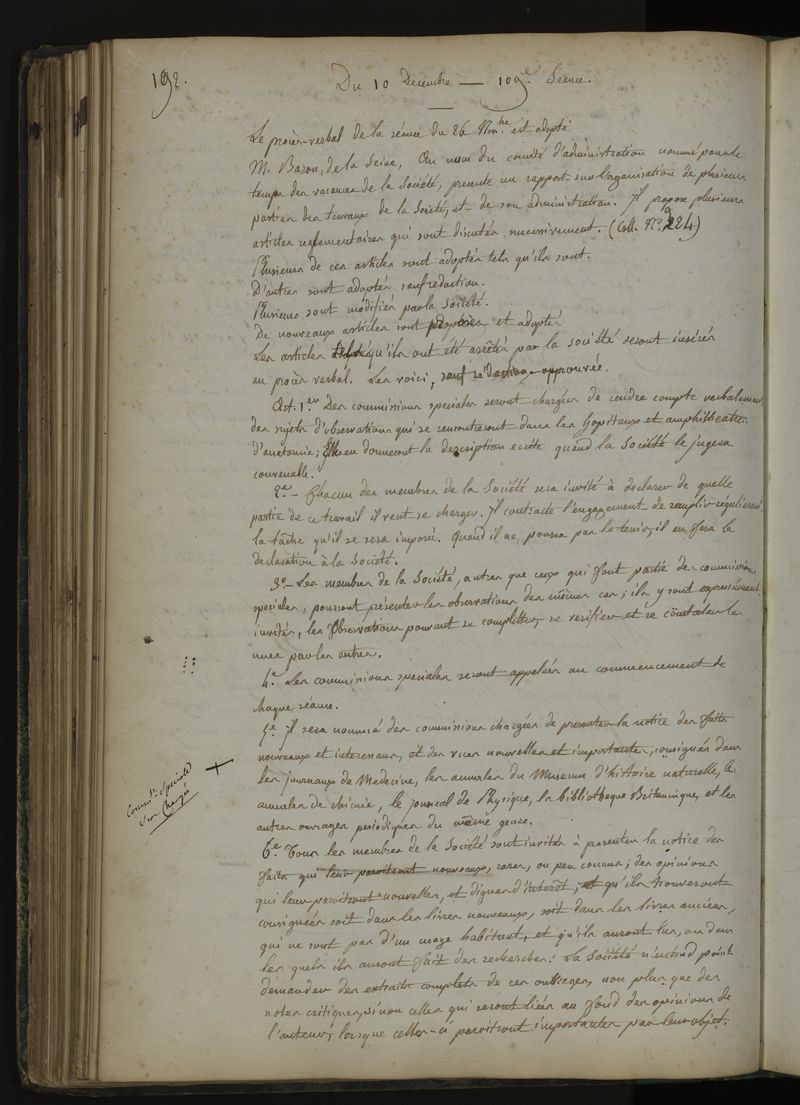 192.
Du 10 Decembre — 109e. Séance.
Le procès-verbal de la séance du 26 9bre est adopté
M. Baron, de la Seine, Au nom du comité d'administration nommé pour le
temps des vacances de la Société, presente un rapport sur l'organisation de plusieurs
parties des travaux de la Société, et de son administration. Il propose plusieurs
articles reglementaires qui sont discutés successivement. (Coll. N° 224)
Plusieurs de ces articles sont adoptés tels qu'ils sont.
D'autres sont adoptés sauf redaction.
Plusieurs sont modifiés par la Société.
De nouveaux articles sont proposés et adoptés
Les articles tels qu'ils ont été arrêtés par la société seront insérés
au procès verbal. Les voici, sauf rédaction approuvée.
Art. 1.er Des commissions speciales seront chargées de rendre compte verbalement
des sujets d'observations qui se rencontreront dans les hopitaux et amphitheatres
d'anatomie; Elles en donneront la description ecrite quand la Société le jugera
convenable.
2.e — Chacun des membres de la Société sera invité à declarer de quelle
partie de ce travail il veut se charger. Il contracte l'engagement de remplir régulièrement
la tâche qu'il se sera imposée. Quand il ne, pourra pas le tenir, il en fera la
declaration à la Société.
3.e — Les membres de la Société, autres que ceux qui font partie des commissions
speciales, pourront présenter les observations des mêmes cas; ils y sont expressément
invités, les Observations pouvant se completter, se verifier et se constater les
unes par les autres.
4.e Les commissions speciales seront appelées au commencement de
chaque séance.
5.e Il sera nommé des commissions chargées de presenter la notice des faits
nouveaux et interessans, et des vues nouvelles et importantes, consignés dans
les journaux de Medecine, les annales du Museum d'histoire naturelle, les
annales de chimie, le journal de Physique, la bibliotheque Britannique, et les
autres ouvrages periodiques du même genre.
Comm.s Speciale
+
6.e Tous les membres de la Société sont invités à presenter la notice des
faits qui leur paroitront nouveaux, rares, ou peu connus; des opinions
qui leur paroitront nouvelles, et dignes d'interêt, et qu'ils trouveront
consignées soit dans les livres nouveaux, soit dans les livres anciens,
qui ne sont pas d'un usage habituel, et qu'ils auront lus, ou dans
les quels ils auront fait des recherches. La Société n'entend point
demander des extraits complets de ces ouvrages, non plus que des
notes critiques, si non celles qui seront liées au fond des opinions de
l'auteur, lorsque celles-ci paroitront importantes par leur objet.